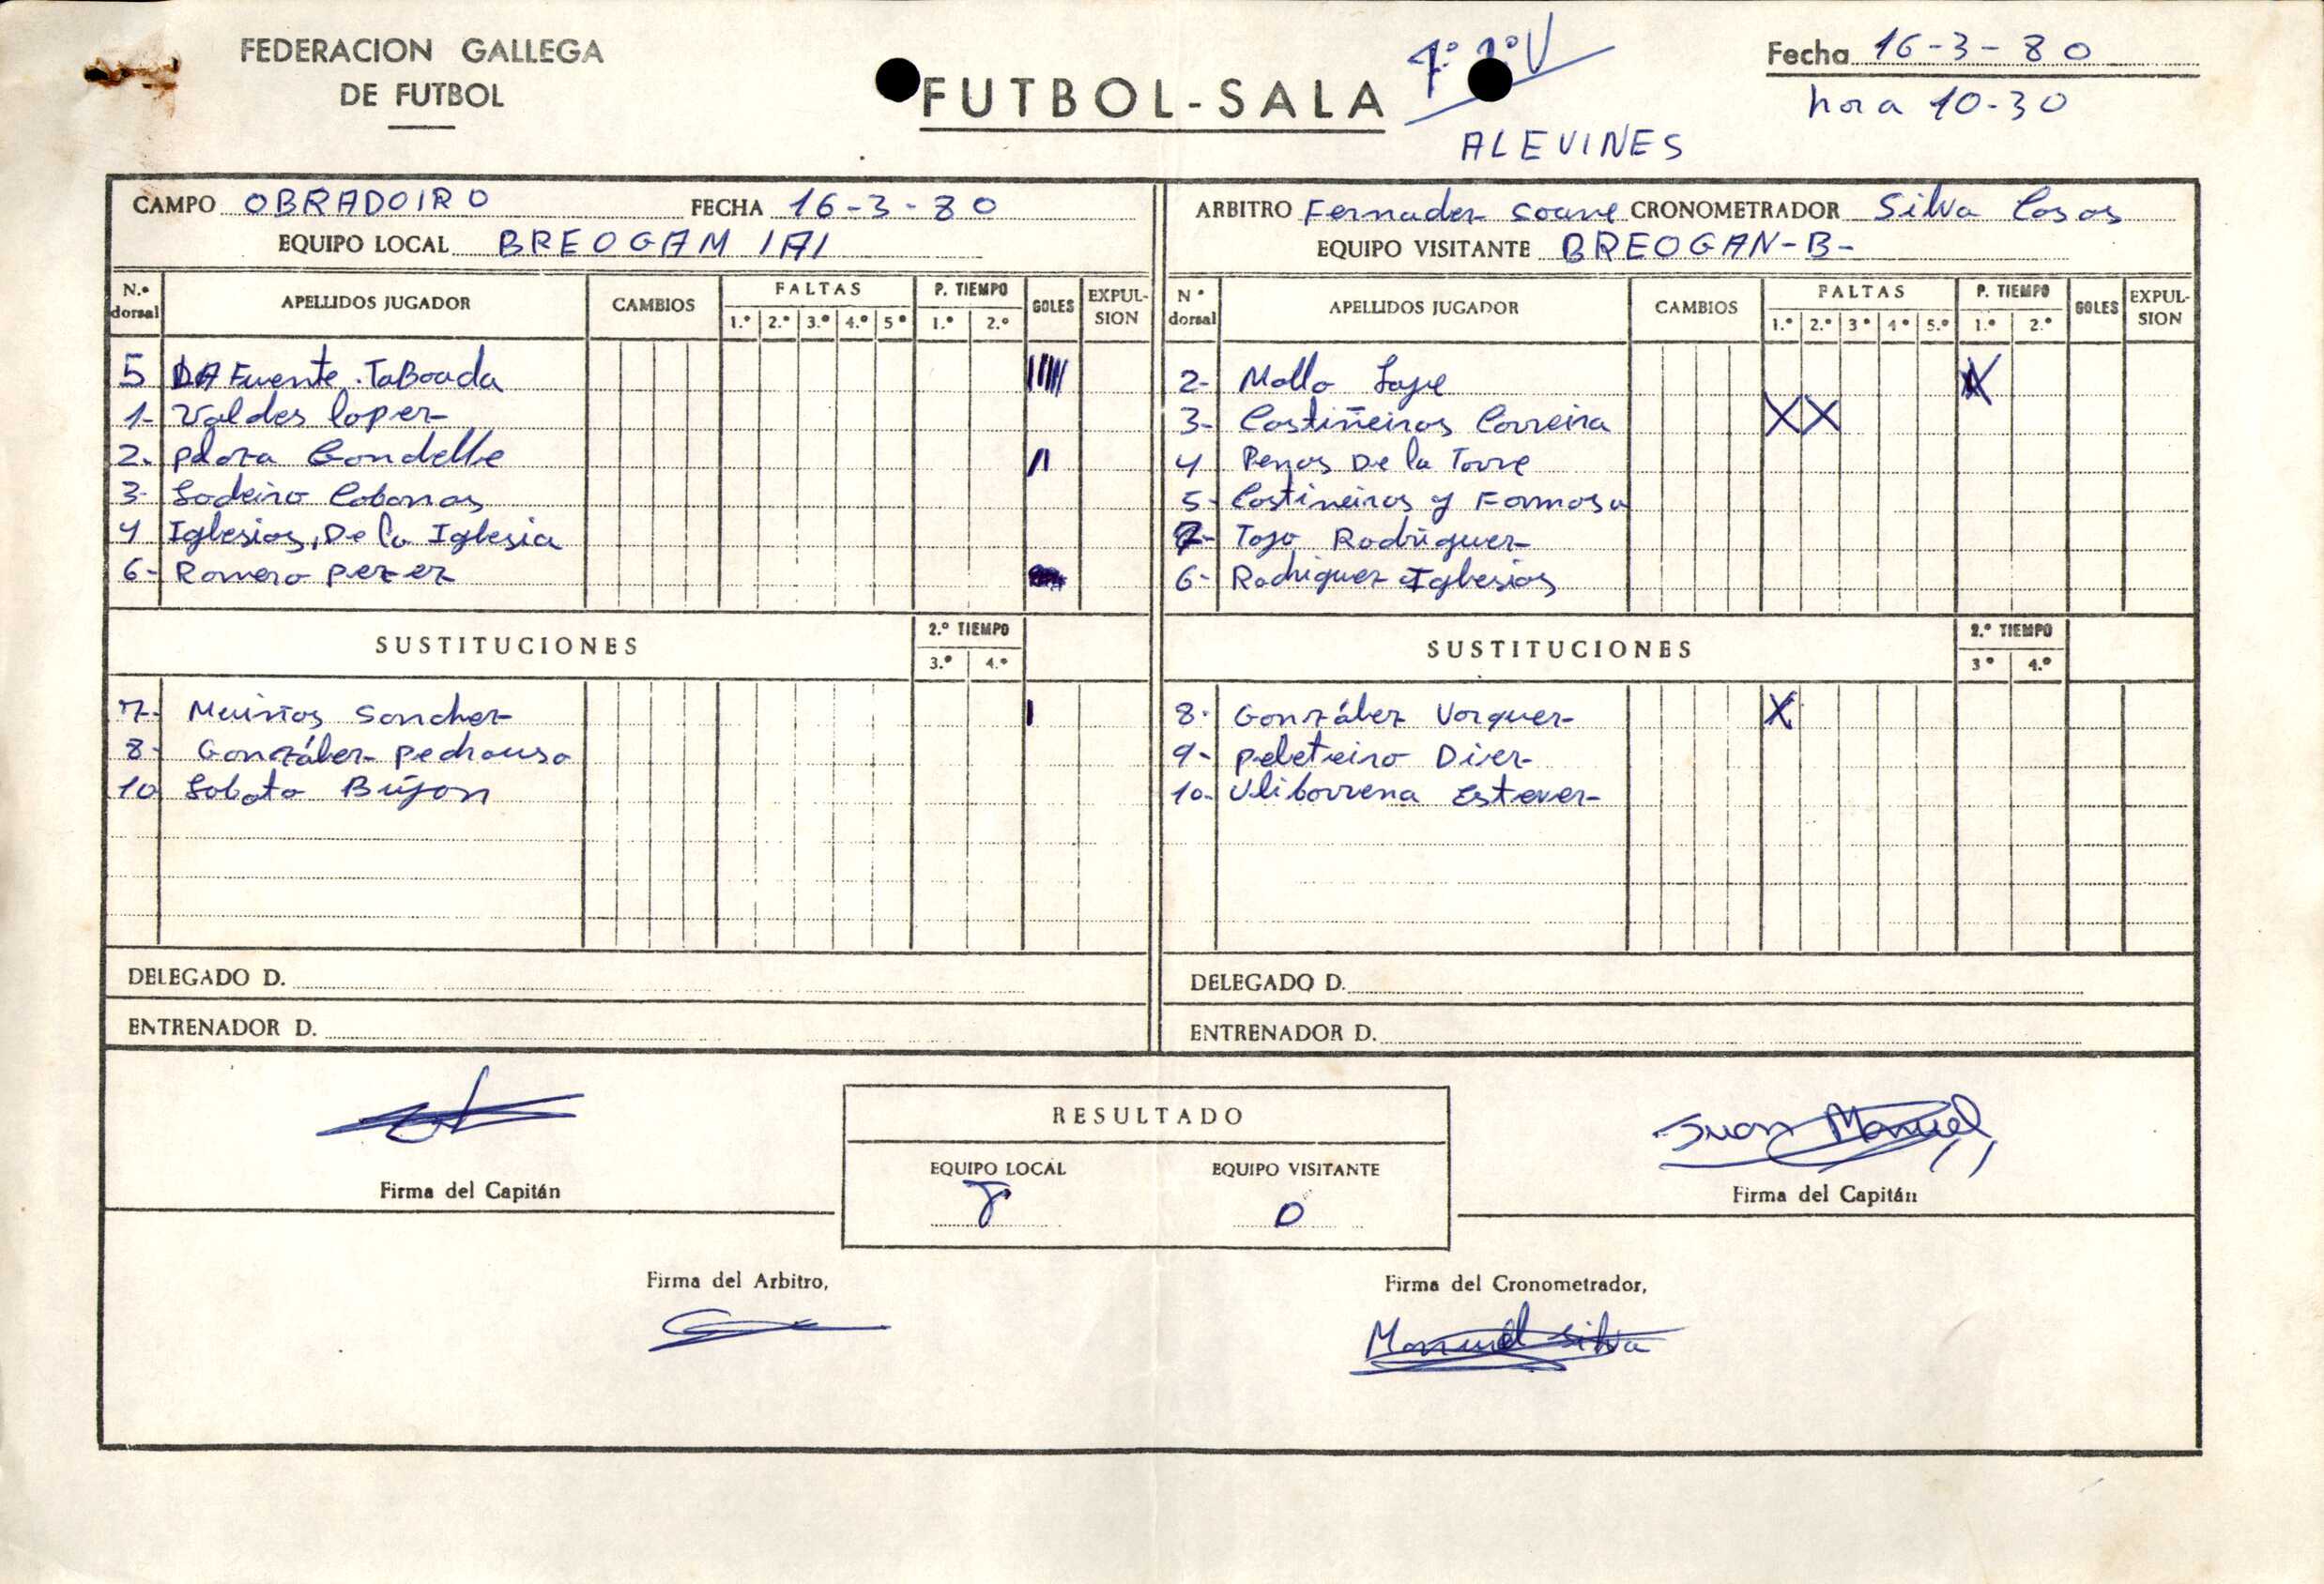 FEDERACION GALLEGA
DE FUTBOL
FUTBOL-SALA
ALEVINES
Fecha 16-3-80
hora 10-30
CAMPO OBRADOIRO FECHA 16-3-80
EQUIPO LOCAL BREOGAM "A"
ARBITRO Fernadez Soane CRONOMETRADOR Silva Casas
EQUIPO VISITANTE BREOGAN-B-
N.º dorsal APELLIDOS JUGADOR CAMBIOS FALTAS 1.º 2.º 3.º 4.º 5º P. TIEMPO 1.º 2.º GOLES EXPULSION
5 DA Fuente TaBoada
1- Valdes lopez
2- Gondelle
3- Lodeiro Cabanas
4 Iglesias, De la Iglesia
6- Romero perez
SUSTITUCIONES 2.º TIEMPO 3.º 4.º
7- Muiños Sanchez
8- González pedrouso
10 Sobato Bujon
N º dorsal APELLIDOS JUGADOR CAMBIOS FALTAS 1.º 2.º 3º 4º 5.º P. TIEMPO 1.º 2.º GOLES EXPULSION
2- Mallo
3- Castiñeiras Carreira
4 Penas De la Torre
5- Castineiras y Formoso
7- Tojo Rodriguez
6- Rodriguez Iglesias
SUSTITUCIONES 2.º TIEMPO 3º 4.º
8- González Vazquez
9- peleteiro Diez
10- Ulibarrena Estevez
DELEGADO D.
ENTRENADOR D.
DELEGADO D.
ENTRENADOR D.
Firma del Capitán
RESULTADO
EQUIPO LOCAL EQUIPO VISITANTE
8 0
Juan Manuel
Firma del Capitán
Firma del Arbitro,
Firma del Cronometrador,
Manuel Silva